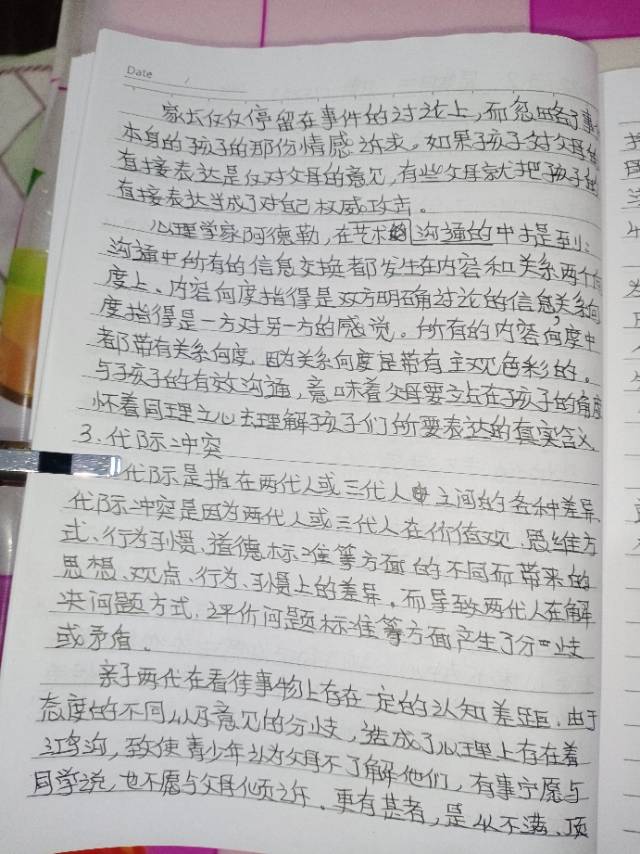 Date /
家长仅仅停留在事件的讨论上,而忽略了事
本身的孩子的那份情感诉求。如果孩子对父母的
直接表达是仅对父母的意见,有些父母就把孩子的
直接表达当成了对自己权威攻击。
心理学家阿德勒,在艺术的沟通的中提到:
沟通中所有的信息交换都发生在内容和关系两个向
度上。内容向度指得是双方明确讨论的信息,关系向
度指得是一方对另一方的感觉。所有的内容向度中
都带有关系向度,因为关系向度是带有主观色彩的。
与孩子的有效沟通,意味着父母要立占在孩子的角度
怀着同理之心去理解孩子们所要表达的真实含义
3.代际冲突
代际是指在两代人或三代人之间的各种差异,
代际冲突是因为两代人或三代人在价值观、思维方
式、行为习惯、道德标准等方面的不同而带来的
思想、观点、行为、习惯上的差异,而导致两代人在解
决问题方式,评价问题标准等方面产生了分歧
或矛盾。
亲子两代在看待事物上存在一定的认知差距,由于
态度的不同以及意见的分歧,造成了心理上存在着
鸿沟,致使青少年认为父母不了解他们,有事宁愿与
同学说,也不愿与父母倾诉。更有甚者,是从不满、顶